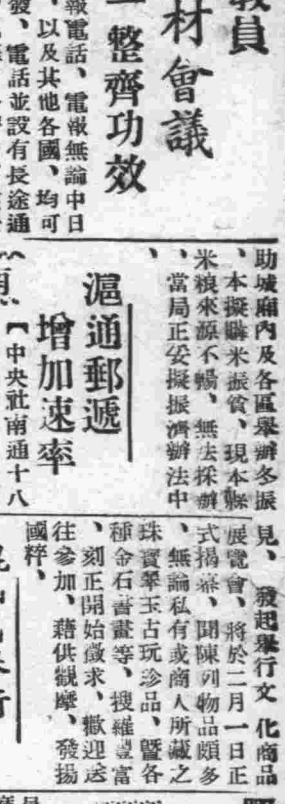 教員
材會議
整齊功效
報電話、電報無論中日
、以及其他各國、均可
發、電話並設有長途通
助城廂內及各區舉辦冬振
、本擬購米振貧、現本縣
米粮來源不暢、無法採辦
、當局正妥擬振濟辦法中
、
滬通郵遞
增加速率
【中央社南通十八
見、發起舉行文化商品
展覽會、將於二月一日正
式揭幕、聞陳列物品頗多
、無論私有或商人所藏之
珠寶翠玉古玩珍品、暨各
種金石書畫等、搜羅豐富
、刻正開始徵求、歡迎送
往參加、藉供觀摩、發揚
國粹、